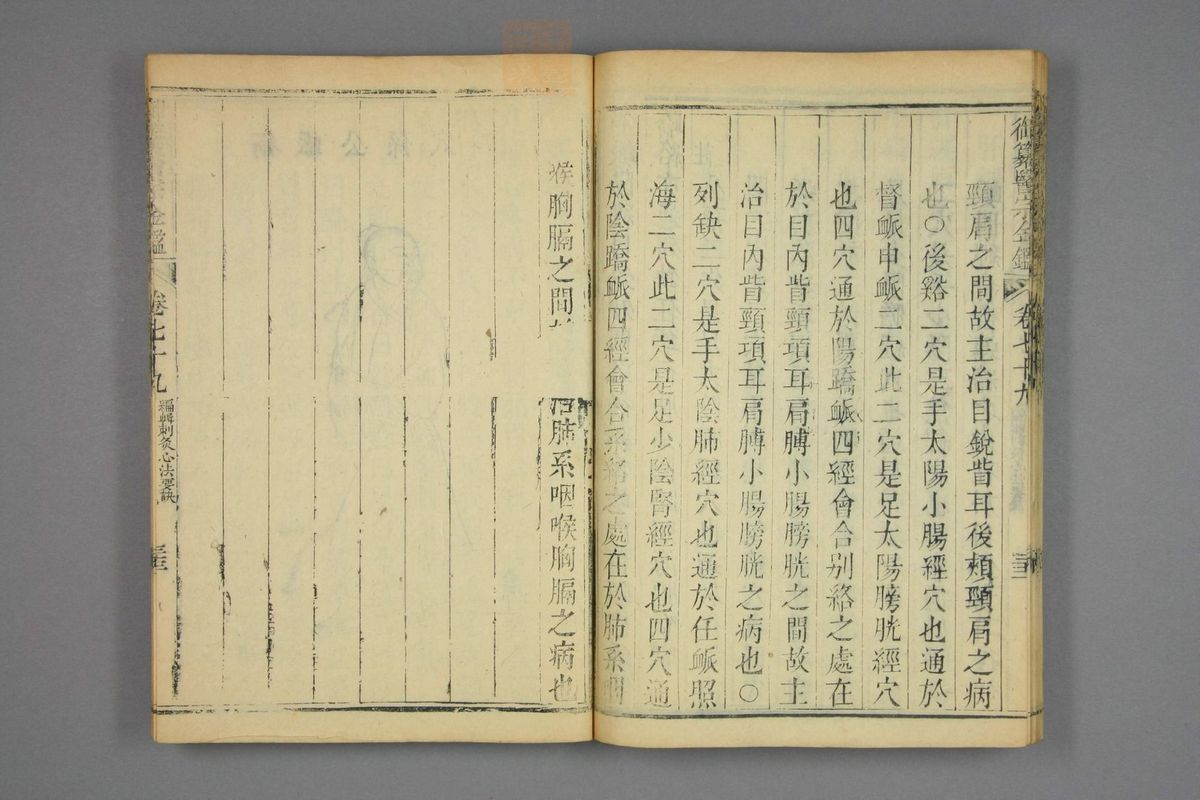 御纂醫宗金鑑 卷七十九 三十三
頸肩之間故主治目銳眥耳後頰頸肩之病
也○後谿二穴是手太陽小腸經穴也通於
督脈申脈二穴此二穴是足太陽膀胱經穴
也四穴通於陽蹻脈四經會合別絡之處在
於目內眥頸項耳肩膊小腸膀胱之間故主
治目內眥頸項耳肩膊小腸膀胱之病也○
列缺二穴是手太陰肺經穴也通於任脈照
海二穴此二穴是足少陰腎經穴也四穴通
於陰蹻脈四經會合系絡之處在於肺系咽
喉胸膈之間 治肺系咽喉胸膈之病也
金鑑 卷七十九 編輯刺灸心法要訣 三十三